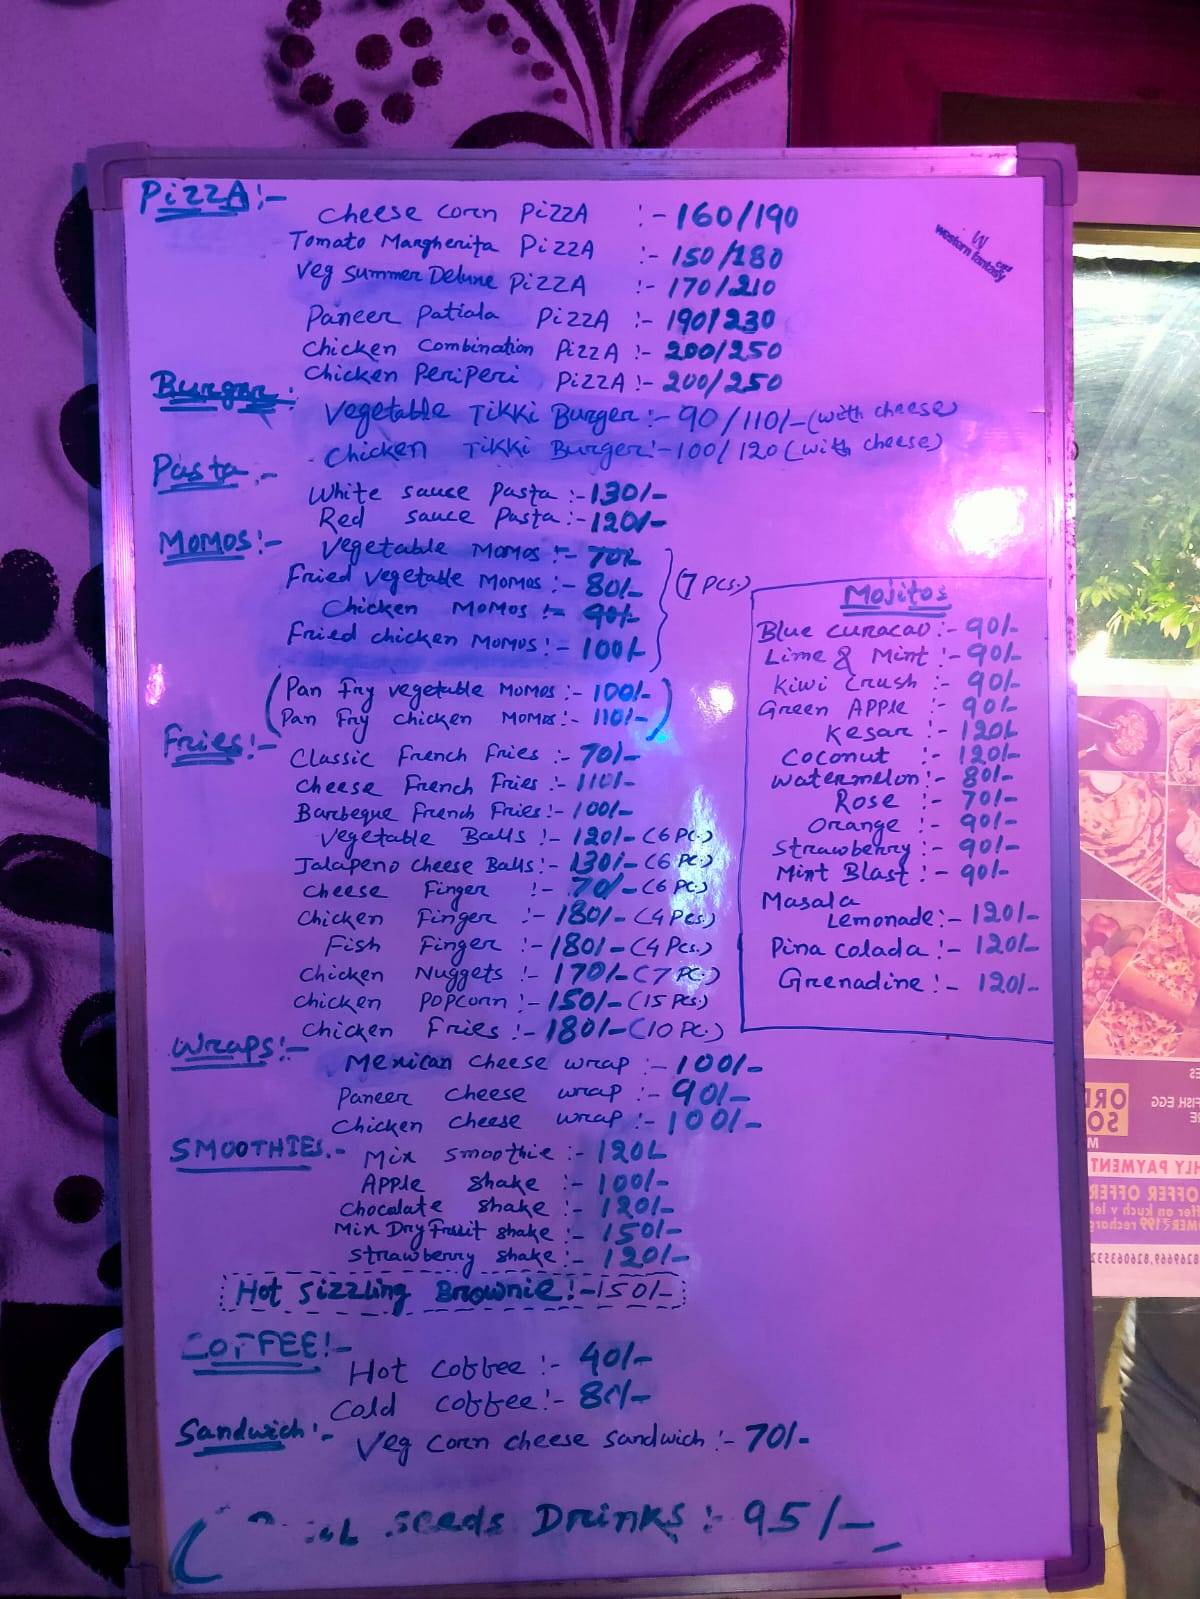 PizzA:-
Cheese Corn PizzA :- 160/190
Tomato Margherita PizzA :- 150/180
Veg Summer Deluxe PizzA :- 170/210
Paneer Patiala PizzA :- 190/230
Chicken Combination PizzA :- 200/250
Chicken PeriPeri PizzA :- 200/250
Burger:
Vegetable Tikki Burger:- 90/110/- (with cheese)
Chicken Tikki Burger:- 100/120 (with cheese)
Pasta:-
White sauce Pasta :- 130/-
Red sauce Pasta :- 120/-
MOMOS:-
Vegetable MOMOS :- 70/-
Fried Vegetable MOMOS :- 80/-
Chicken MOMOS :- 90/-
Fried chicken MOMOS :- 100/-
(7 Pcs.)
(Pan Fry vegetable MOMOS :- 100/-)
(Pan Fry chicken MOMOS :- 110/-)
Fries:-
Classic French Fries :- 70/-
Cheese French Fries :- 110/-
Barbeque French Fries :- 100/-
Vegetable Balls :- 120/- (6 Pc.)
Jalapeno Cheese Balls :- 130/- (6 Pc.)
Cheese Finger :- 70/- (6 Pc.)
Chicken Finger :- 180/- (4 Pcs.)
Fish Finger :- 180/- (4 Pcs.)
Chicken Nuggets :- 170/- (7 Pc.)
Chicken POPCORN :- 150/- (15 Pcs.)
Chicken Fries :- 180/- (10 Pc.)
Wraps:-
Mexican Cheese wrap :- 100/-
Paneer Cheese wrap :- 90/-
Chicken Cheese wrap :- 100/-
SMOOTHIES:-
Mix smoothie :- 120/-
Apple shake :- 100/-
Chocalate shake :- 120/-
Mix Dry Fruit shake :- 150/-
Strawberry shake :- 120/-
Hot Sizzling Brownie :- 150/-
COFFEE:-
Hot Coffee :- 40/-
Cold Coffee :- 80/-
Sandwich:-
Veg Corn cheese sandwich :- 70/-
seeds Drinks :- 95/-
W
western fantasy
Mojitos
Blue curacao :- 90/-
Lime & Mint :- 90/-
Kiwi Crush :- 90/-
Green APPLE :- 90/-
Kesar :- 120/-
Coconut :- 120/-
Watermelon :- 80/-
Rose :- 70/-
Orange :- 90/-
Strawberry :- 90/-
Mint Blast :- 90/-
Masala
Lemonade :- 120/-
Pina Colada :- 120/-
Grenadine :- 120/-